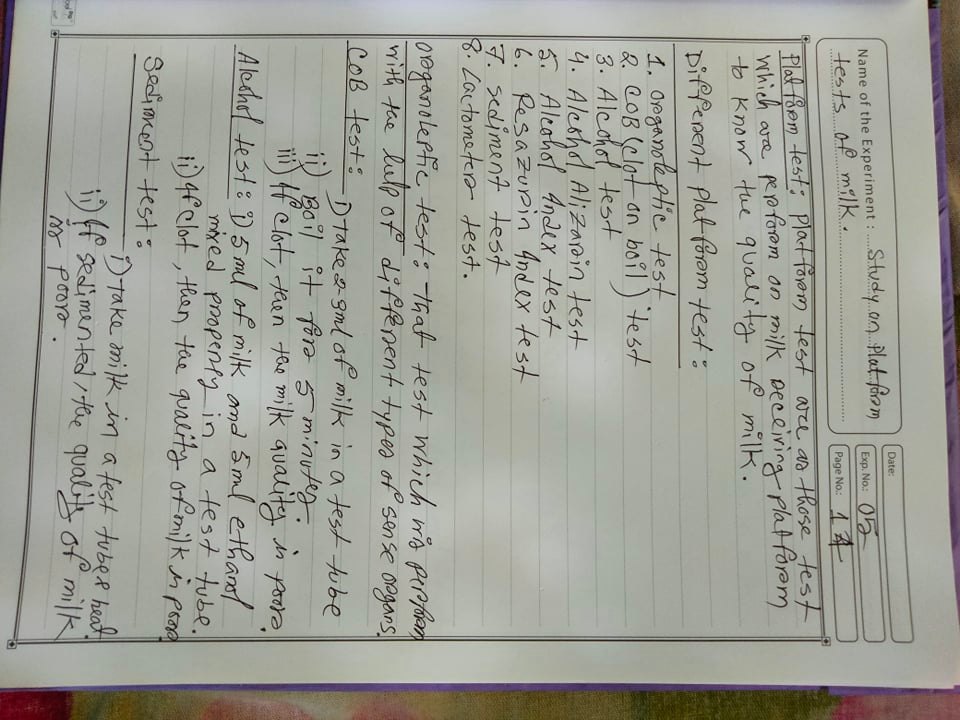 Name of the Experiment : Study on Platform
tests of milk.
Date:
Exp. No.: 05
Page No.: 14
Platform test: Platform test are as those test
which are perform on milk receiving platform
to know the quality of milk.
Different platform test:
1. Organoleptic test
2. COB (clot on boil) test
3. Alcohol test
4. Alcohol Alizarin test
5. Alcohol Index test
6. Resazurin Index test
7. sediment test
8. Lactometer test.
Organoleptic test: That test which is perform
with the help of different types of sense organs.
COB test:
i) Take 2-3ml of milk in a test tube
ii) Boil it for 5 minutes.
iii) If clot, then the milk quality is poor.
Alcohol test: i) 5 ml of milk and 5ml ethanol
mixed properly in a test tube.
ii) If clot, then the quality of milk is poor
Sediment test:
i) Take milk in a test tube & heat.
ii) If sedimented, the quality of milk
is poor.